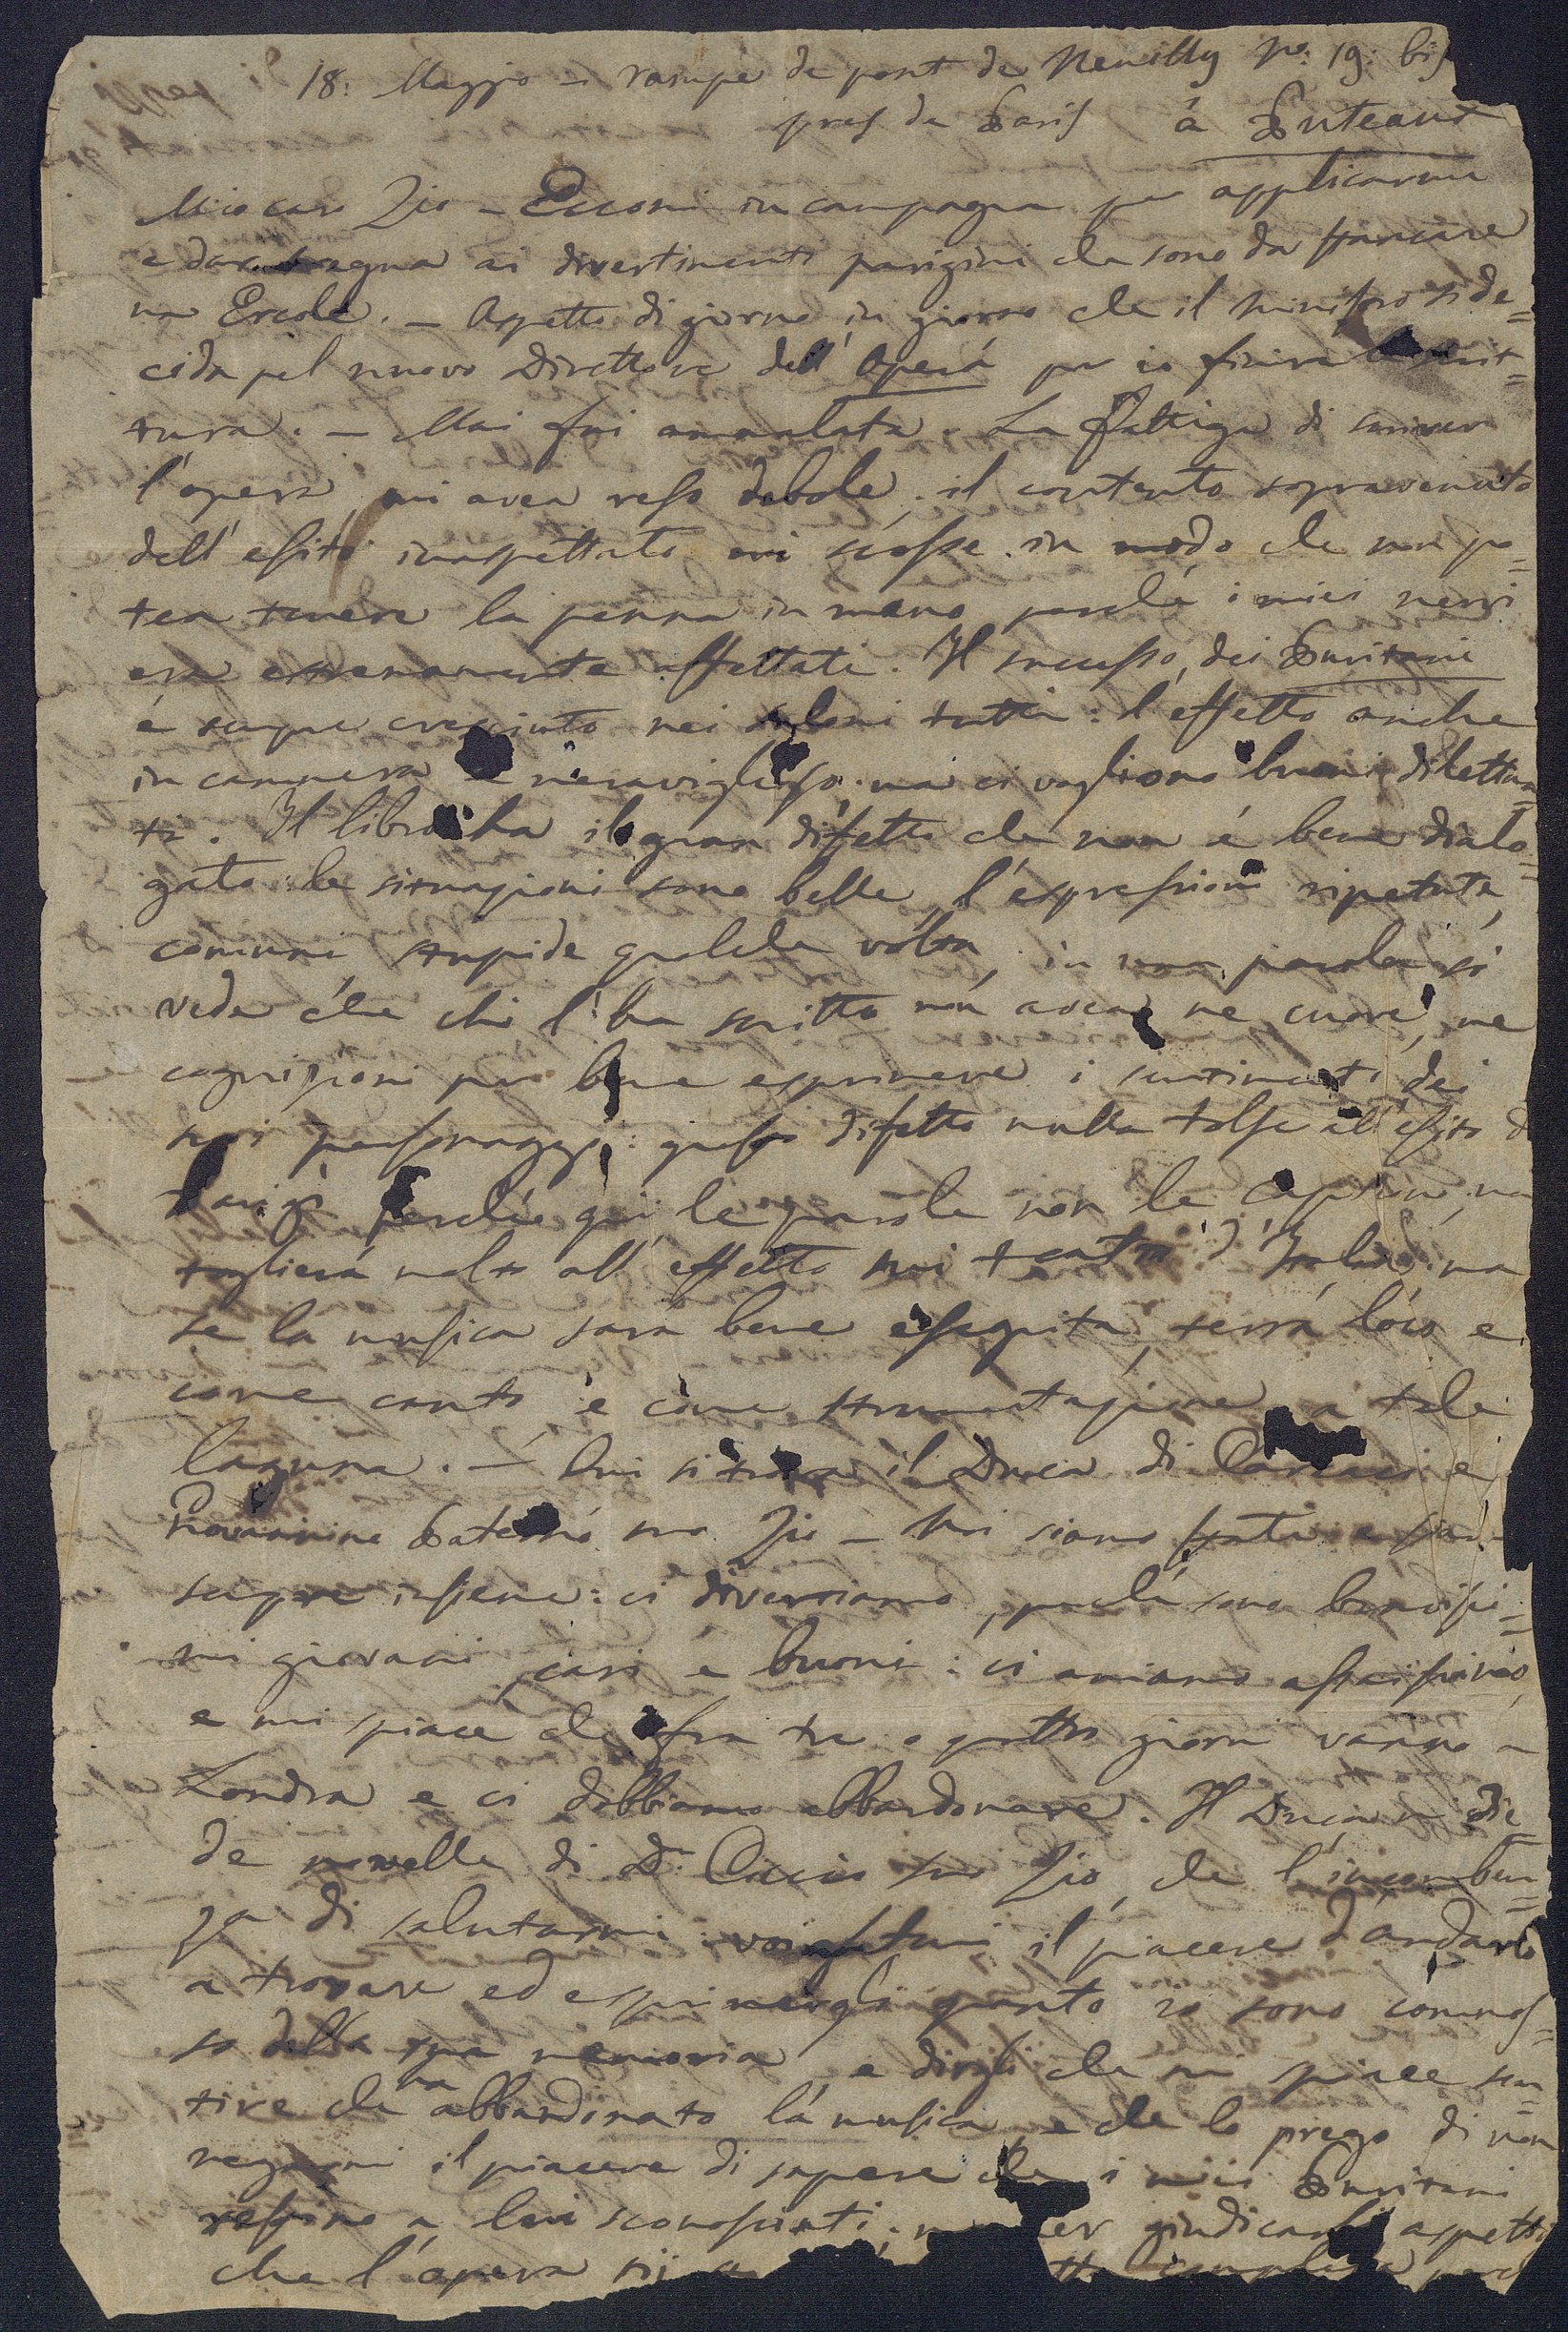 18: Maggio – rampe de pont de Neuilly No: 19: bis
pres de Paris à Puteaux
Mio caro Zio – Eccomi in campagna per applicarmi
e dar tregua ai divertimenti parigini che sono da stancare
un Ercole. – Aspetto di giorno in giorno che il ministro si de=
cida pel nuovo Direttore dell'Operá per io finire la scrit=
tura. – Mai fui ammalato. La fattiga di scrivere
l'opera, mi avea reso debole: il contento sopravenuto
dell'esito inaspettato mi scosse in modo che non po=
tea tenere la penna in mano perché i miei nervi
era estremamente affettati. Il successo dei Puritani
é sempre cresciuto nei saloni tutti: l'effetto anche
in cammera é meraviglioso: ma ci vogliono buoni dilettan=
ti. Il libro ha il gran difetto che non é bene dialo=
gato: le situazioni sono belle, l'espressioni ripetute,
comuni stupide qualche volta, in una parola si
vede che chi l'ha scritto non avea ne cuore, ne
cognizioni per bene esprimere i sentimenti dei
suoi personaggi: questo difetto nulla tolse all'esito di
Parigi perché qui le parole non le capiscon, ma
togliera molto all'effetto nei teatri d'Italia: ma
se la musica sará bene eseguita, terrá loco e
come canto e come strumentazione a tale
lacuna. – Qui si trova il Duca di Carcaci e
Giovannino Paternó suo Zio – Noi siamo stati e siamo
sempre insieme: ci divertiamo, perché sono bravissi=
mi giovani, cari e buoni: ci amiamo assaissimo,
e mi spiace che fra tre o quattro giorni vanno a
Londra e ci dobbiamo abbandonare. Il Duca mi die=
de novelle di Dn. Ciccio suo Zio, che l'incomben=
za di salutarmi: voi fatemi il piacere d'andarlo
a trovare ed esprimergli quanto io sono commos=
so della sua memoria, e dirgli che mi spiace sen=
tire che ha abbandonato la musica, e che lo prego di non
negarmi il piacere di sapere che i miei Puritani
restino a lui sconosciuti; ma per giudicarli aspetti
che l'opera sij completa